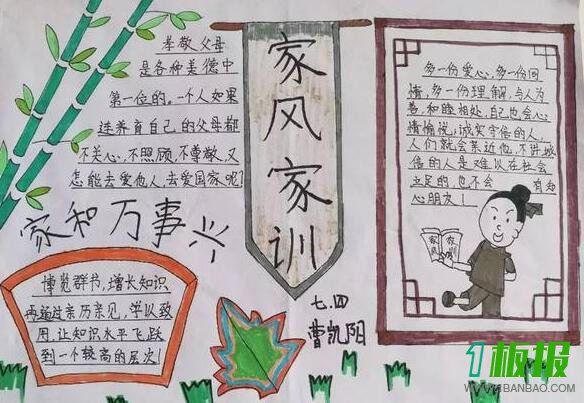 孝敬父母
是各种美德中
第一位的。一个人如果
连养育自己的父母都
不关心,不照顾,不尊敬,又
怎能去爱他人,去爱国家呢?
家和万事兴
博览群书,增长知识,
再通过亲历亲见,学以致
用,让知识水平飞跃
到一个较高的层次!
家风家训
七.四
曹凯阳
多一份爱心,多一份同
情,多一份理解,与人为
善,和睦相处,自己也会心
情愉悦;诚实守信的人,
人们就会亲近他,不讲诚
信的人是难以在社会
立足的,也不会 有知
心朋友!
家风
家训
板报
WWW.1BANBAO.COM